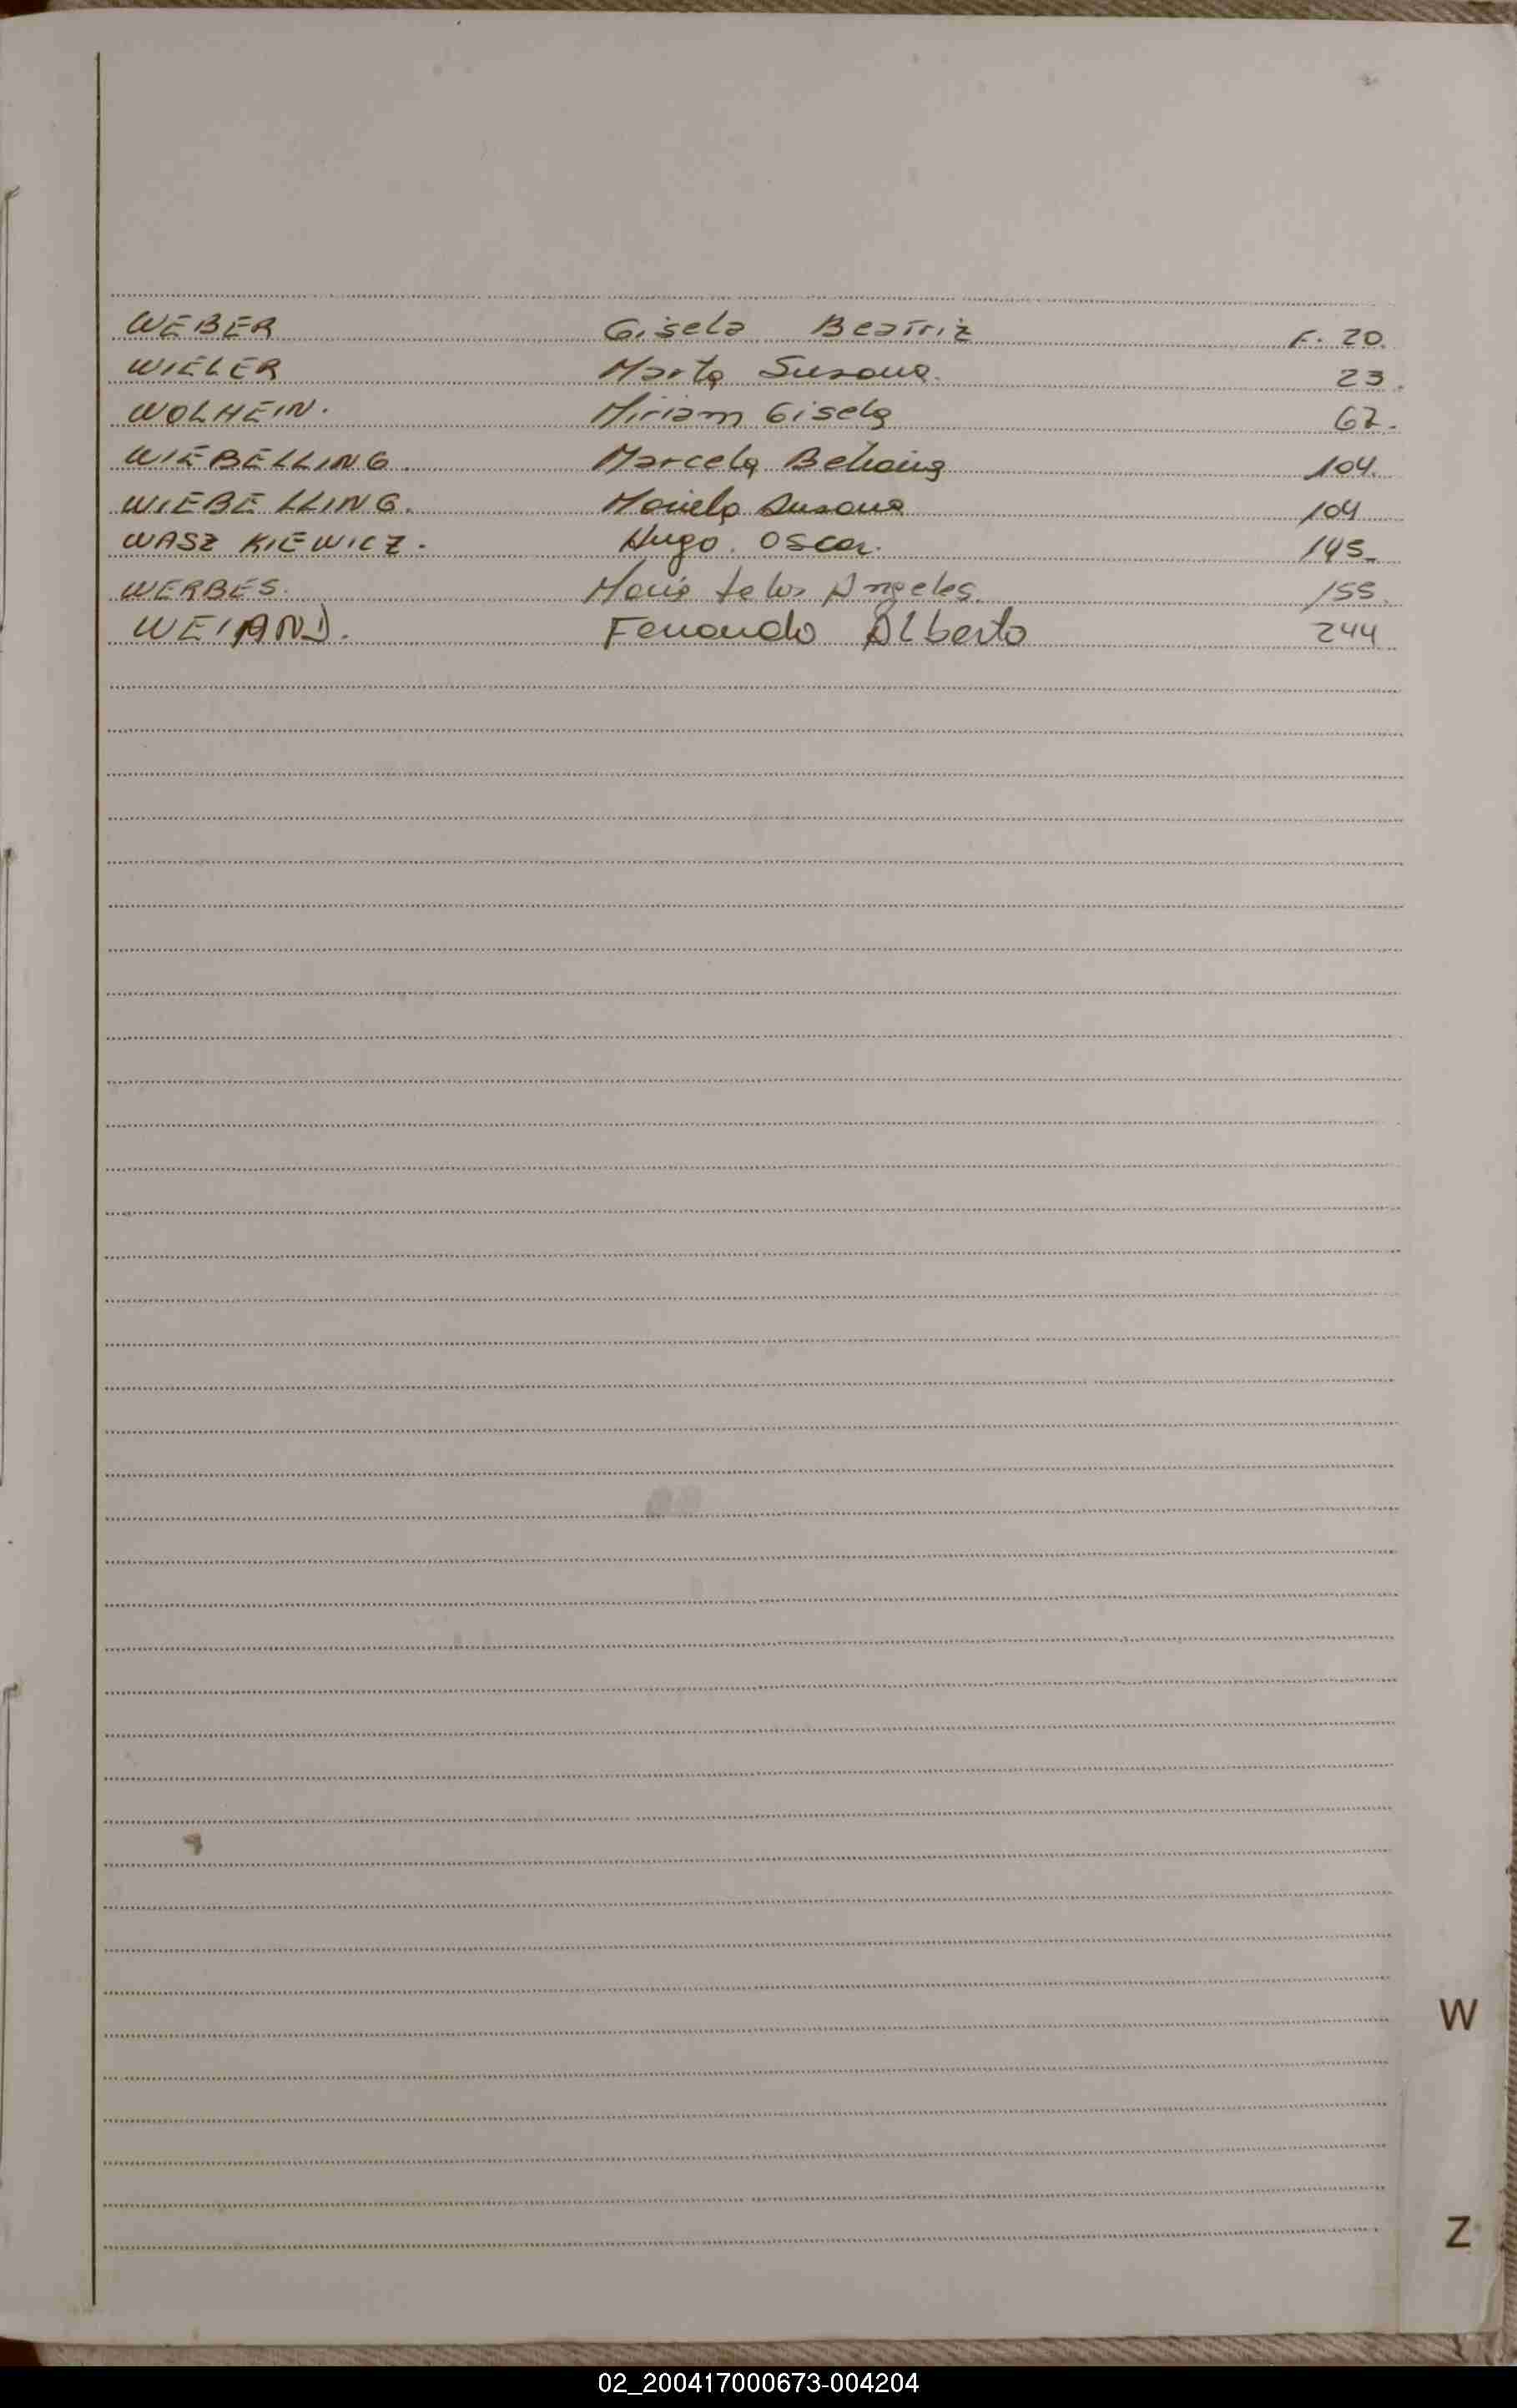 WEBER Gisela Beatriz F. 20.
WIELER Marta Susana. 23.
WOLHEIN. Miriam Gisela 67.
WIEBELLING. Marcela Betiana 104.
WIEBELLING. Mariela Susana 104
WASZKIEWICZ. Hugo. Oscar. 145
WERBES. Maria de los Angeles. 155.
WEIAND. Fernando Alberto 244
W
Z
02_200417000673-004204